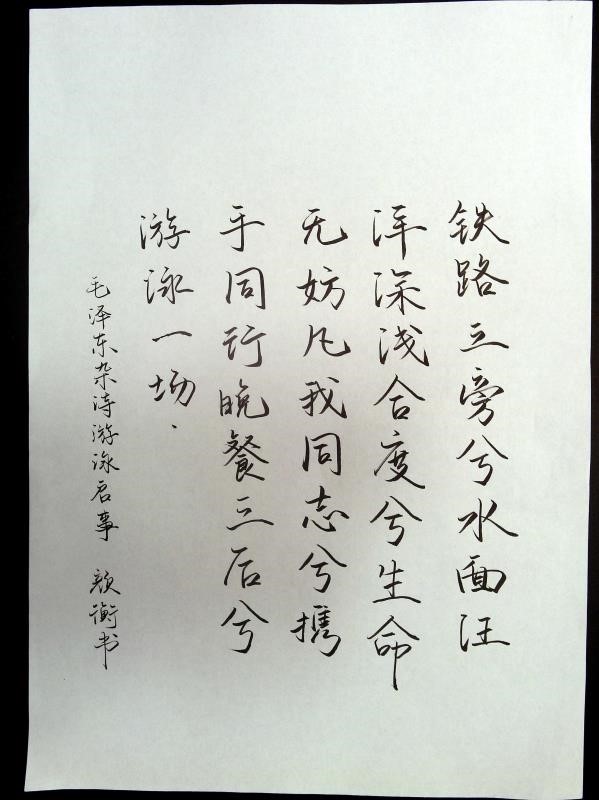 铁路之旁兮水面汪
洋深浅合度兮生命
无妨凡我同志兮携
手同行晚餐之后兮
游泳一场.
毛泽东杂诗游泳启事 颜衡书